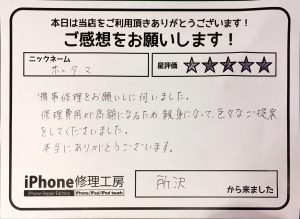 本日は当店をご利用頂きありがとうございます！
ご感想をお願いします！
ニックネーム
ホッタマ
星評価
★★★★★
携帯修理をお願いしに伺いました。
修理費用が高額になるため親身になって、色々なご提案
をしてくださいました。
本当にありがとうございます。
iPhone修理工房
iPhone Repair Factory
iPhone/iPad/iPod touch
所沢
から来ました